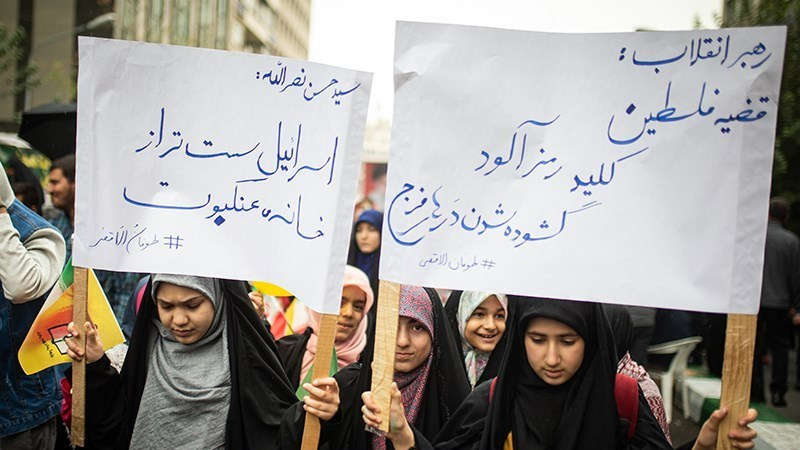 رهبر انقلاب:
قضیه فلسطین
کلید رمزآلود
گشوده شدن درهای فرج
#طوفان_الاقصی
سید حسن نصرالله:
اسرائیل سست تر از
خانه‌ی عنکبوت
#طوفان_الاقصی